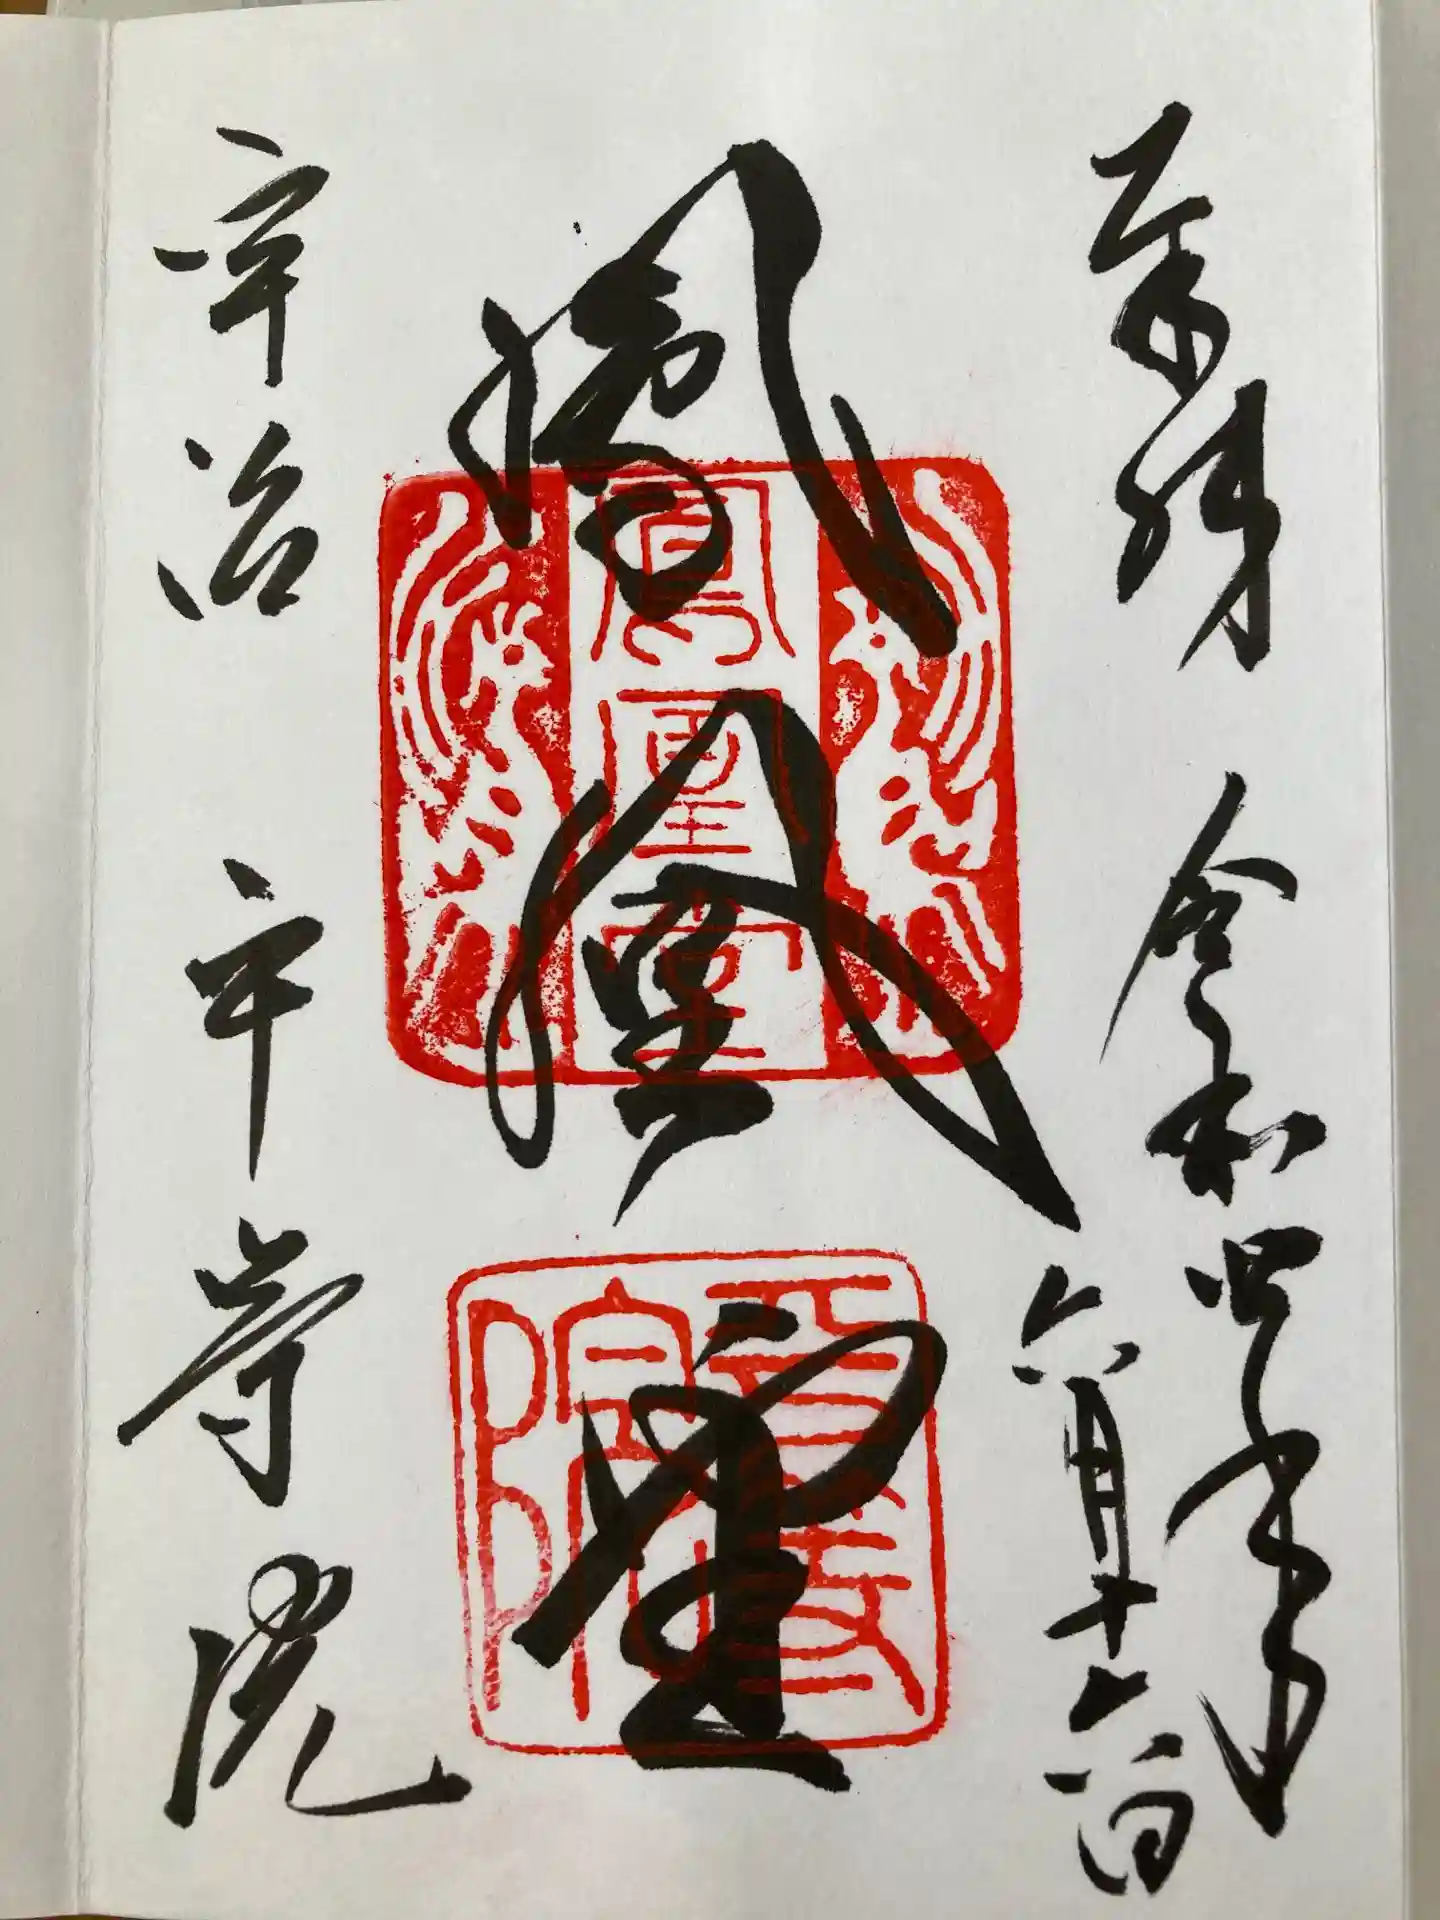 奉拝 令和四年
六月十六日
鳳凰堂
鳳凰堂
宇治 平等院